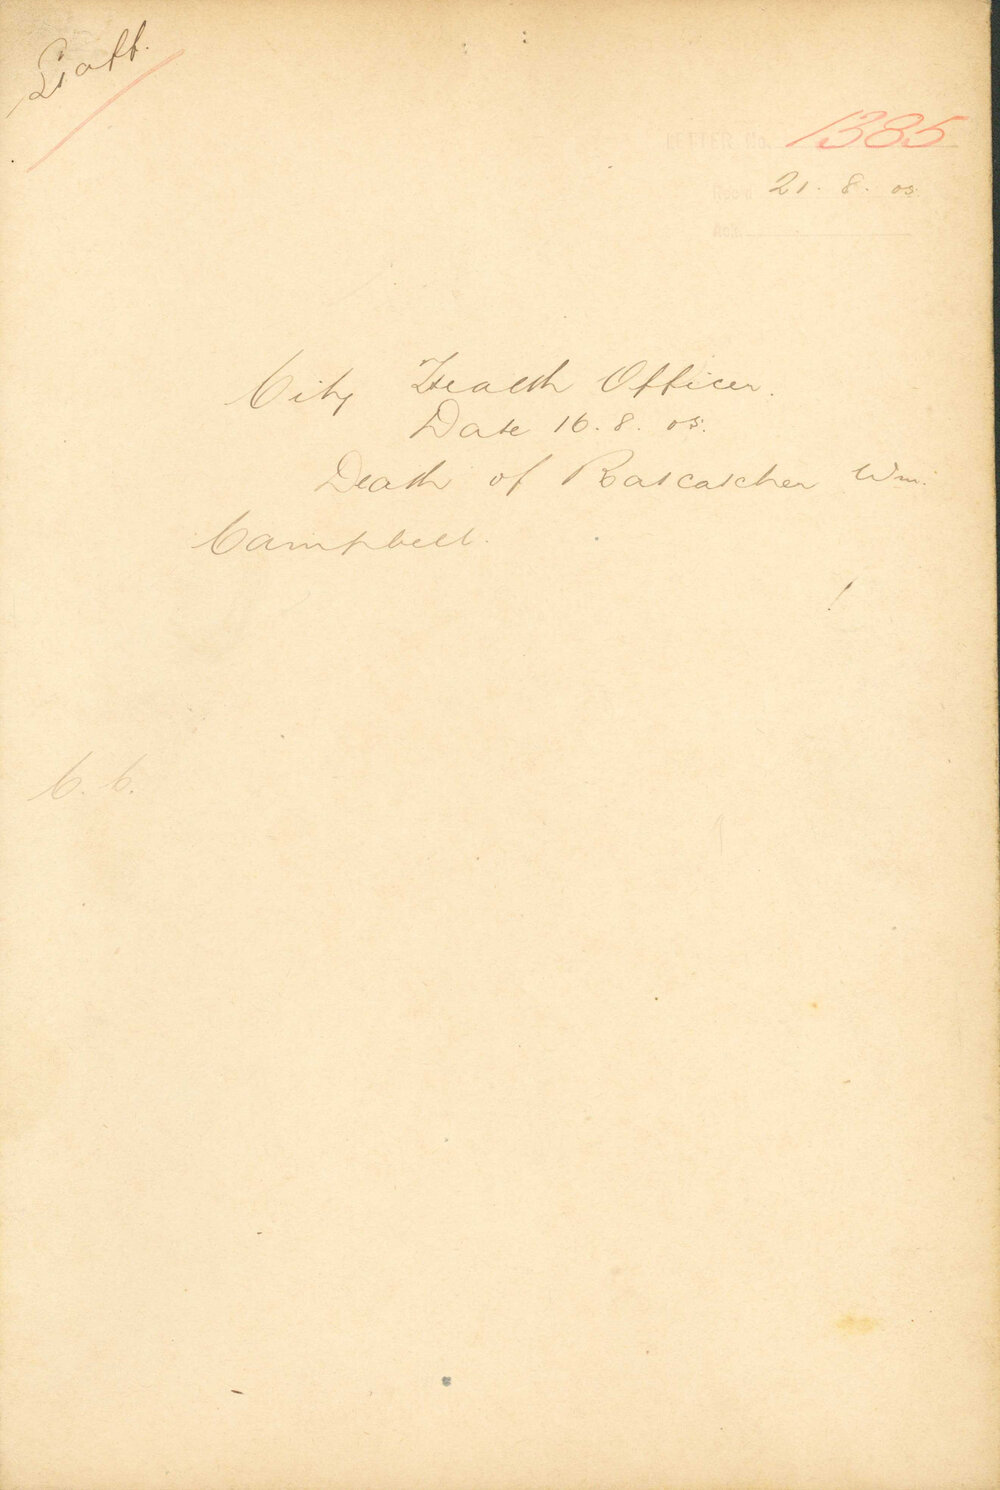 Staff.
LETTER No. 1385
Rec'd 21. 8. 05.
Ack.
City Health Officer.
Date 16. 8. 05.
Death of Ratcatcher Wm.
Campbell.
C. C.